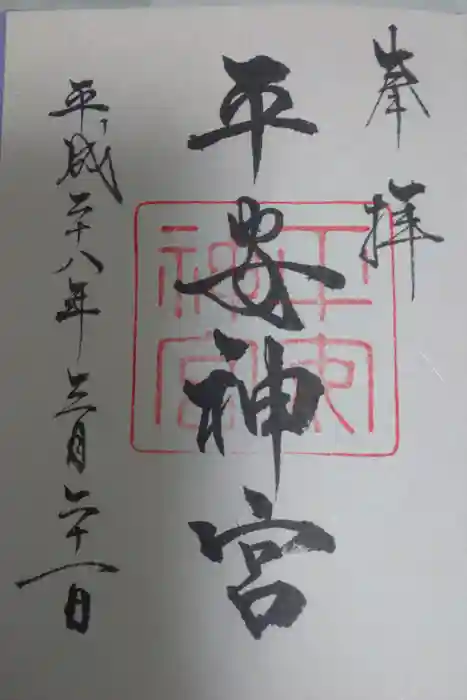 奉拝
平安神宮
平成二十八年三月二十一日
平安神宮